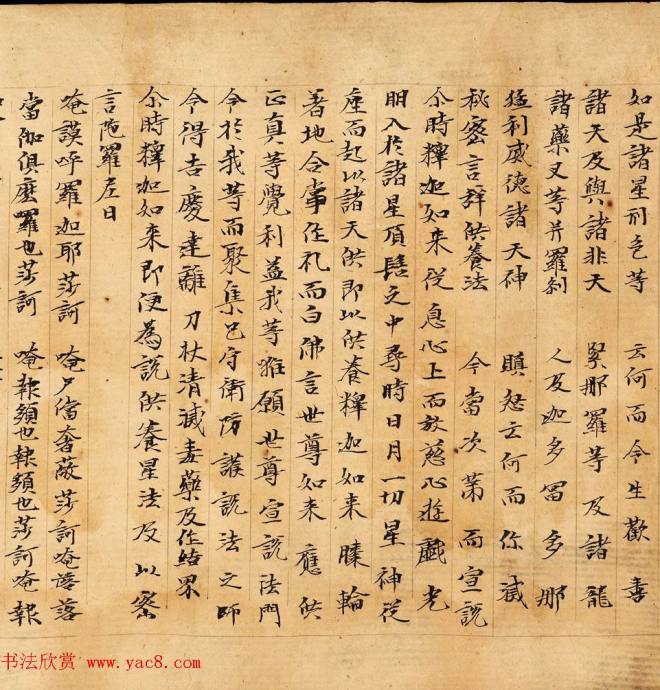 如是諸星刑色等 云何而令生歡喜
諸天及與諸非天 緊那羅等及諸龍
諸藥叉等并羅刹 人及迦多冨多那
猛利威德諸天神 瞋怒云何而你滅
秘密言辝供養法 今當次第而宣說
尒時釋迦如来從息心上而放慈心遊戲光
明入於諸星頂髻之中尋時日月一切星神從
座而起以諸天供即以供養釋迦如来 輪
著地合掌作礼而白佛言世尊如来應供
正真等覺利益我等唯願世尊宣說法門
令於我等而聚集已守衛防護說法之師
令得吉慶達離刀杖清滅毒藥及作結界
尒時釋迦如来即便為說供養星法及以密
言陁羅尼曰
唵謨呼羅迦耶莎訶 唵尸儅奢蔽莎訶唵落落
當伽俱麼羅也莎訶 唵報頞也報頞也莎訶唵報
书法欣赏 www.yac8.com